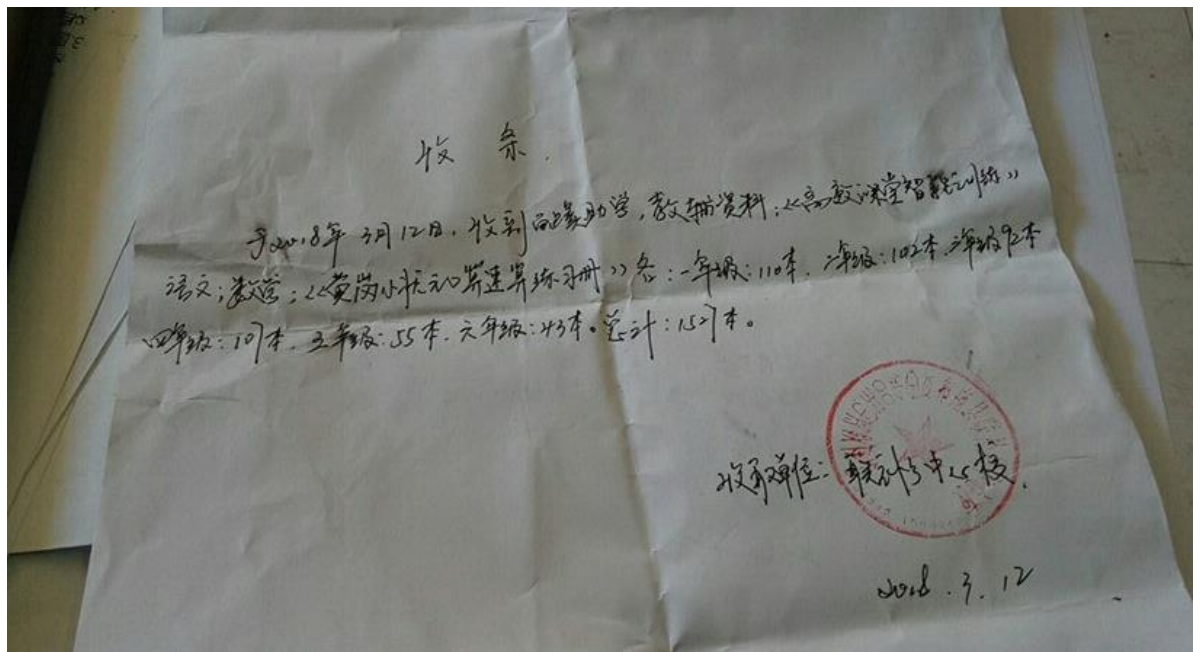 收 条
于2018年3月12日,收到 助学,教辅资料:《高效课堂智能训练》
语文;数学;《黄岗小状元口算速算练习册》各:一年级:110本.二年级:102本.三年级92本
四年级:107本.五年级:55本.六年级:43本。总计:1527本。
收取单位: 中心校.
2018.3.12